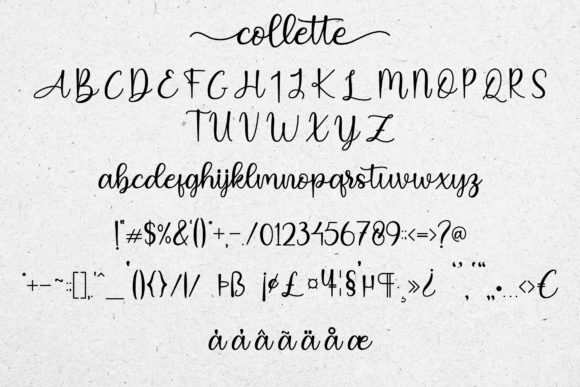 collette
ABCDEFGHIJKLMNOPQRS
TUVWXYZ
abcdefghijklmnopqrstuvwxyz
!"#$%&'()*+,-./0123456789:;<=>?@
*+-~::[],.'^__'(){}/|/ Þß ¡¢£¤Ч¦§'µ¶¸»¿ ‘’‚“”„•…<>€
àáâãäåæ